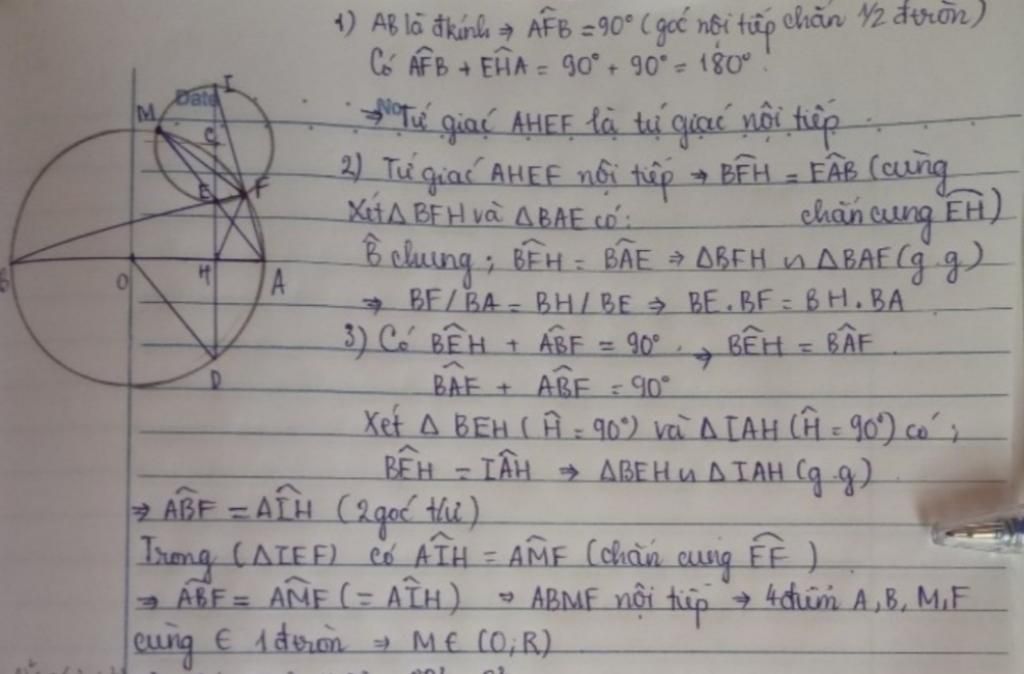 1) AB là đkính ⇒ AF̂B = 90° (góc nội tiếp chắn 1/2 đtròn)
Có AF̂B + EĤA = 90° + 90° = 180°.
⇒ Tứ giác AHEF là tứ giác nội tiếp
2) Tứ giác AHEF nội tiếp → BF̂H = EÂB (cùng
chắn cung EH)
Xét Δ BFH và Δ BAE có:
B̂ chung ; BF̂H = BÂE ⇒ ΔBFH ᔕ ΔBAE (g.g)
⇒ BF/BA = BH/BE ⇒ BE.BF = BH.BA
3) Có BÊH + AB̂F = 90° ⇒ BÊH = BÂF
BÂF + AB̂F = 90°
Xét Δ BEH (Ĥ = 90°) và Δ IAH (Ĥ = 90°) có;
BÊH = IÂH ⇒ ΔBEH ᔕ Δ IAH (g.g)
⇒ AB̂F = AÎH (2 góc t/ư)
Trong (ΔIEF) có AÎH = AM̂F (chắn cung EF)
⇒ AB̂F = AM̂F (= AÎH) ⇒ ABMF nội tiếp → 4 điểm A, B, M, F
cùng ∈ 1 đtròn ⇒ M ∈ (O; R)
Date
No
I
M
C
E
F
B
O
H
A
D